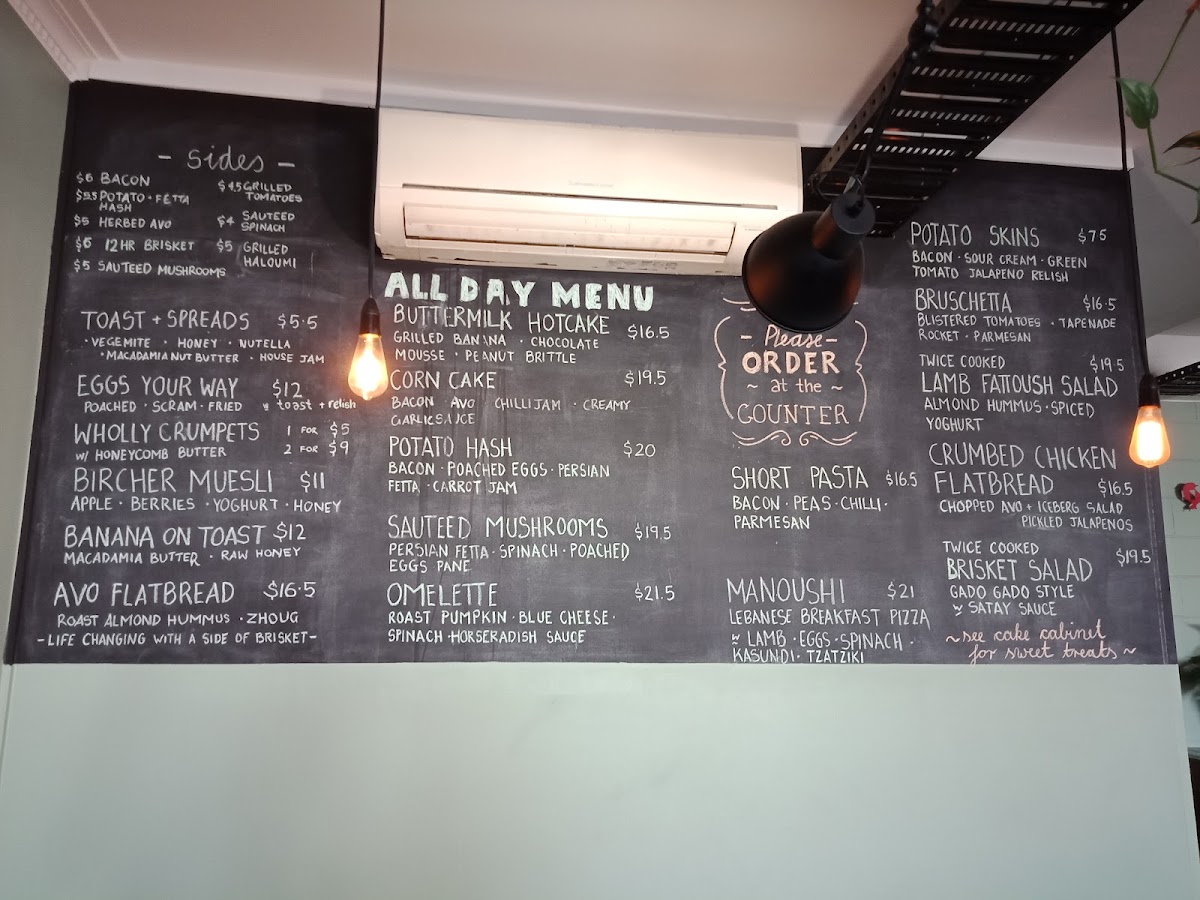 - sides -
$6 BACON
$5.5 POTATO · FETTA
HASH
$5 HERBED AVO
$6 12HR BRISKET
$5 SAUTEED MUSHROOMS
$4.5 GRILLED
TOMATOES
$4 SAUTEED
SPINACH
$5 GRILLED
HALOUMI
TOAST + SPREADS $5.5
· VEGEMITE · HONEY · NUTELLA
· MACADAMIA NUT BUTTER · HOUSE JAM
EGGS YOUR WAY $12
POACHED · SCRAM · FRIED w toast + relish
WHOLLY CRUMPETS 1 FOR $5
W/ HONEYCOMB BUTTER 2 FOR $9
BIRCHER MUESLI $11
APPLE · BERRIES · YOGHURT · HONEY
BANANA ON TOAST $12
MACADAMIA BUTTER · RAW HONEY
AVO FLATBREAD $16.5
ROAST ALMOND HUMMUS · ZHOUG
- LIFE CHANGING WITH A SIDE OF BRISKET -
ALL DAY MENU
BUTTERMILK HOTCAKE $16.5
GRILLED BANANA · CHOCOLATE
MOUSSE · PEANUT BRITTLE
CORN CAKE $19.5
BACON AVO CHILLI JAM · CREAMY
GARLIC SAUCE
POTATO HASH $20
BACON · POACHED EGGS · PERSIAN
FETTA · CARROT JAM
SAUTEED MUSHROOMS $19.5
PERSIAN FETTA · SPINACH · POACHED
EGGS PANE
OMELETTE $21.5
ROAST PUMPKIN · BLUE CHEESE ·
SPINACH · HORSERADISH SAUCE
- Please -
ORDER
~ at the ~
COUNTER
SHORT PASTA $16.5
BACON · PEAS · CHILLI ·
PARMESAN
MANOUSHI $21
LEBANESE BREAKFAST PIZZA
w LAMB · EGGS · SPINACH ·
KASUNDI · TZATZIKI
POTATO SKINS $7.5
BACON · SOUR CREAM · GREEN
TOMATO JALAPENO RELISH
BRUSCHETTA $16.5
BLISTERED TOMATOES · TAPENADE
ROCKET · PARMESAN
TWICE COOKED $19.5
LAMB FATTOUSH SALAD
ALMOND HUMMUS · SPICED
YOGHURT
CRUMBED CHICKEN
FLATBREAD $16.5
CHOPPED AVO + ICEBERG SALAD
PICKLED JALAPENOS
TWICE COOKED $19.5
BRISKET SALAD
GADO GADO STYLE
w SATAY SAUCE
~ see cake cabinet
for sweet treats ~